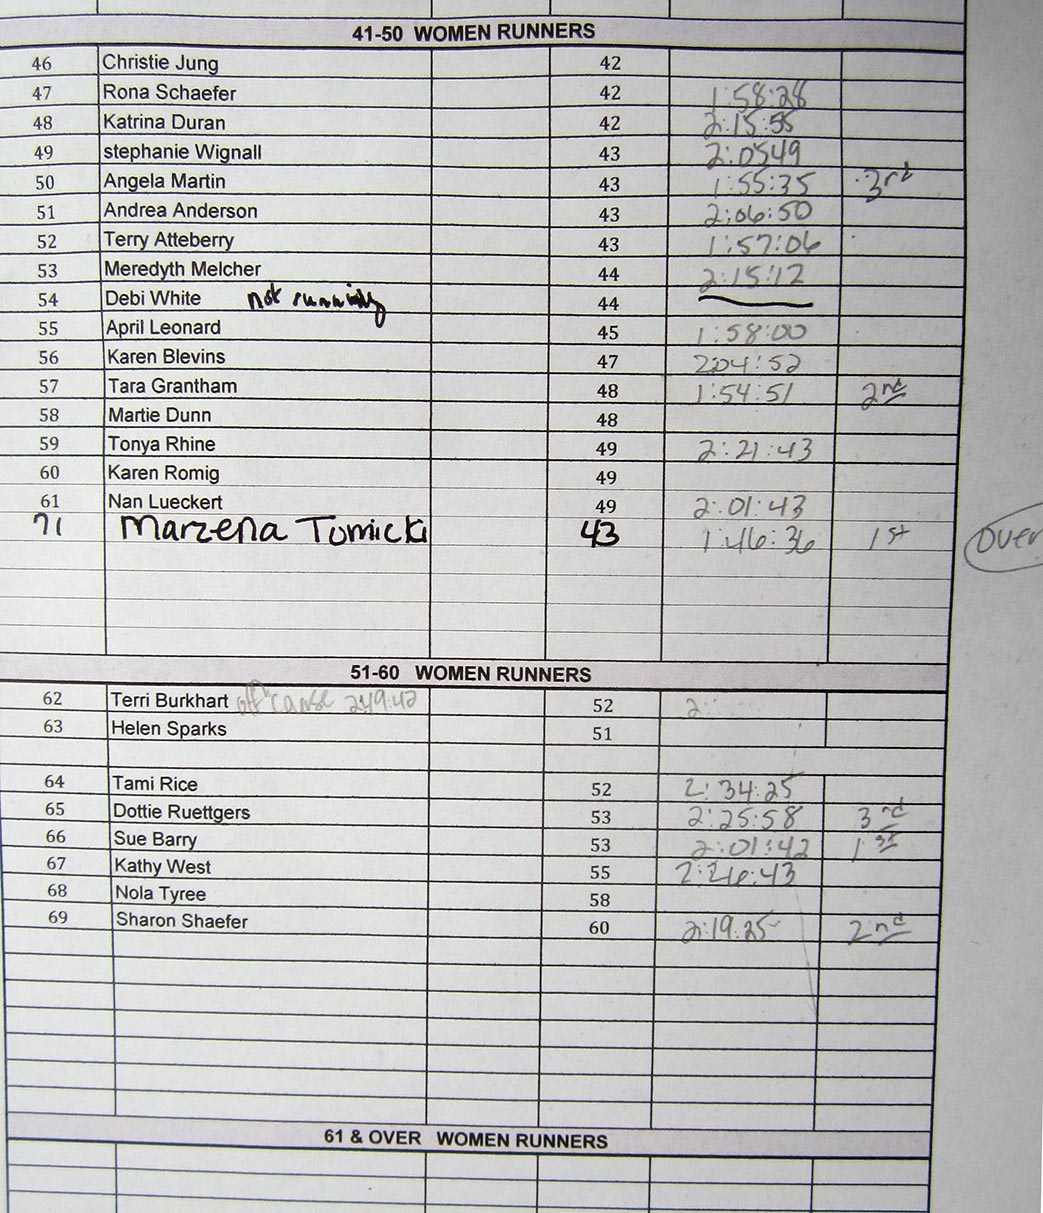 41-50 WOMEN RUNNERS
46 Christie Jung 42
47 Rona Schaefer 42 1:58:28
48 Katrina Duran 42 2:15:55
49 stephanie Wignall 43 2:0549
50 Angela Martin 43 1:55:35 3rd
51 Andrea Anderson 43 2:06:50
52 Terry Atteberry 43 1:57:06
53 Meredyth Melcher 44 2:15:12
54 Debi White not running 44
55 April Leonard 45 1:58:00
56 Karen Blevins 47 2:04:52
57 Tara Grantham 48 1:54:51 2nd
58 Martie Dunn 48
59 Tonya Rhine 49 2:21:43
60 Karen Romig 49
61 Nan Lueckert 49 2:01:43
71 Marzena Tomicki 43 1:46:36 1st Over
51-60 WOMEN RUNNERS
62 Terri Burkhart off 2:49:42 52 2:
63 Helen Sparks 51
64 Tami Rice 52 2:34:25
65 Dottie Ruettgers 53 2:25:58 3rd
66 Sue Barry 53 2:01:42 1st
67 Kathy West 55 2:26:43
68 Nola Tyree 58
69 Sharon Shaefer 60 2:19.25 2nd
61 & OVER WOMEN RUNNERS